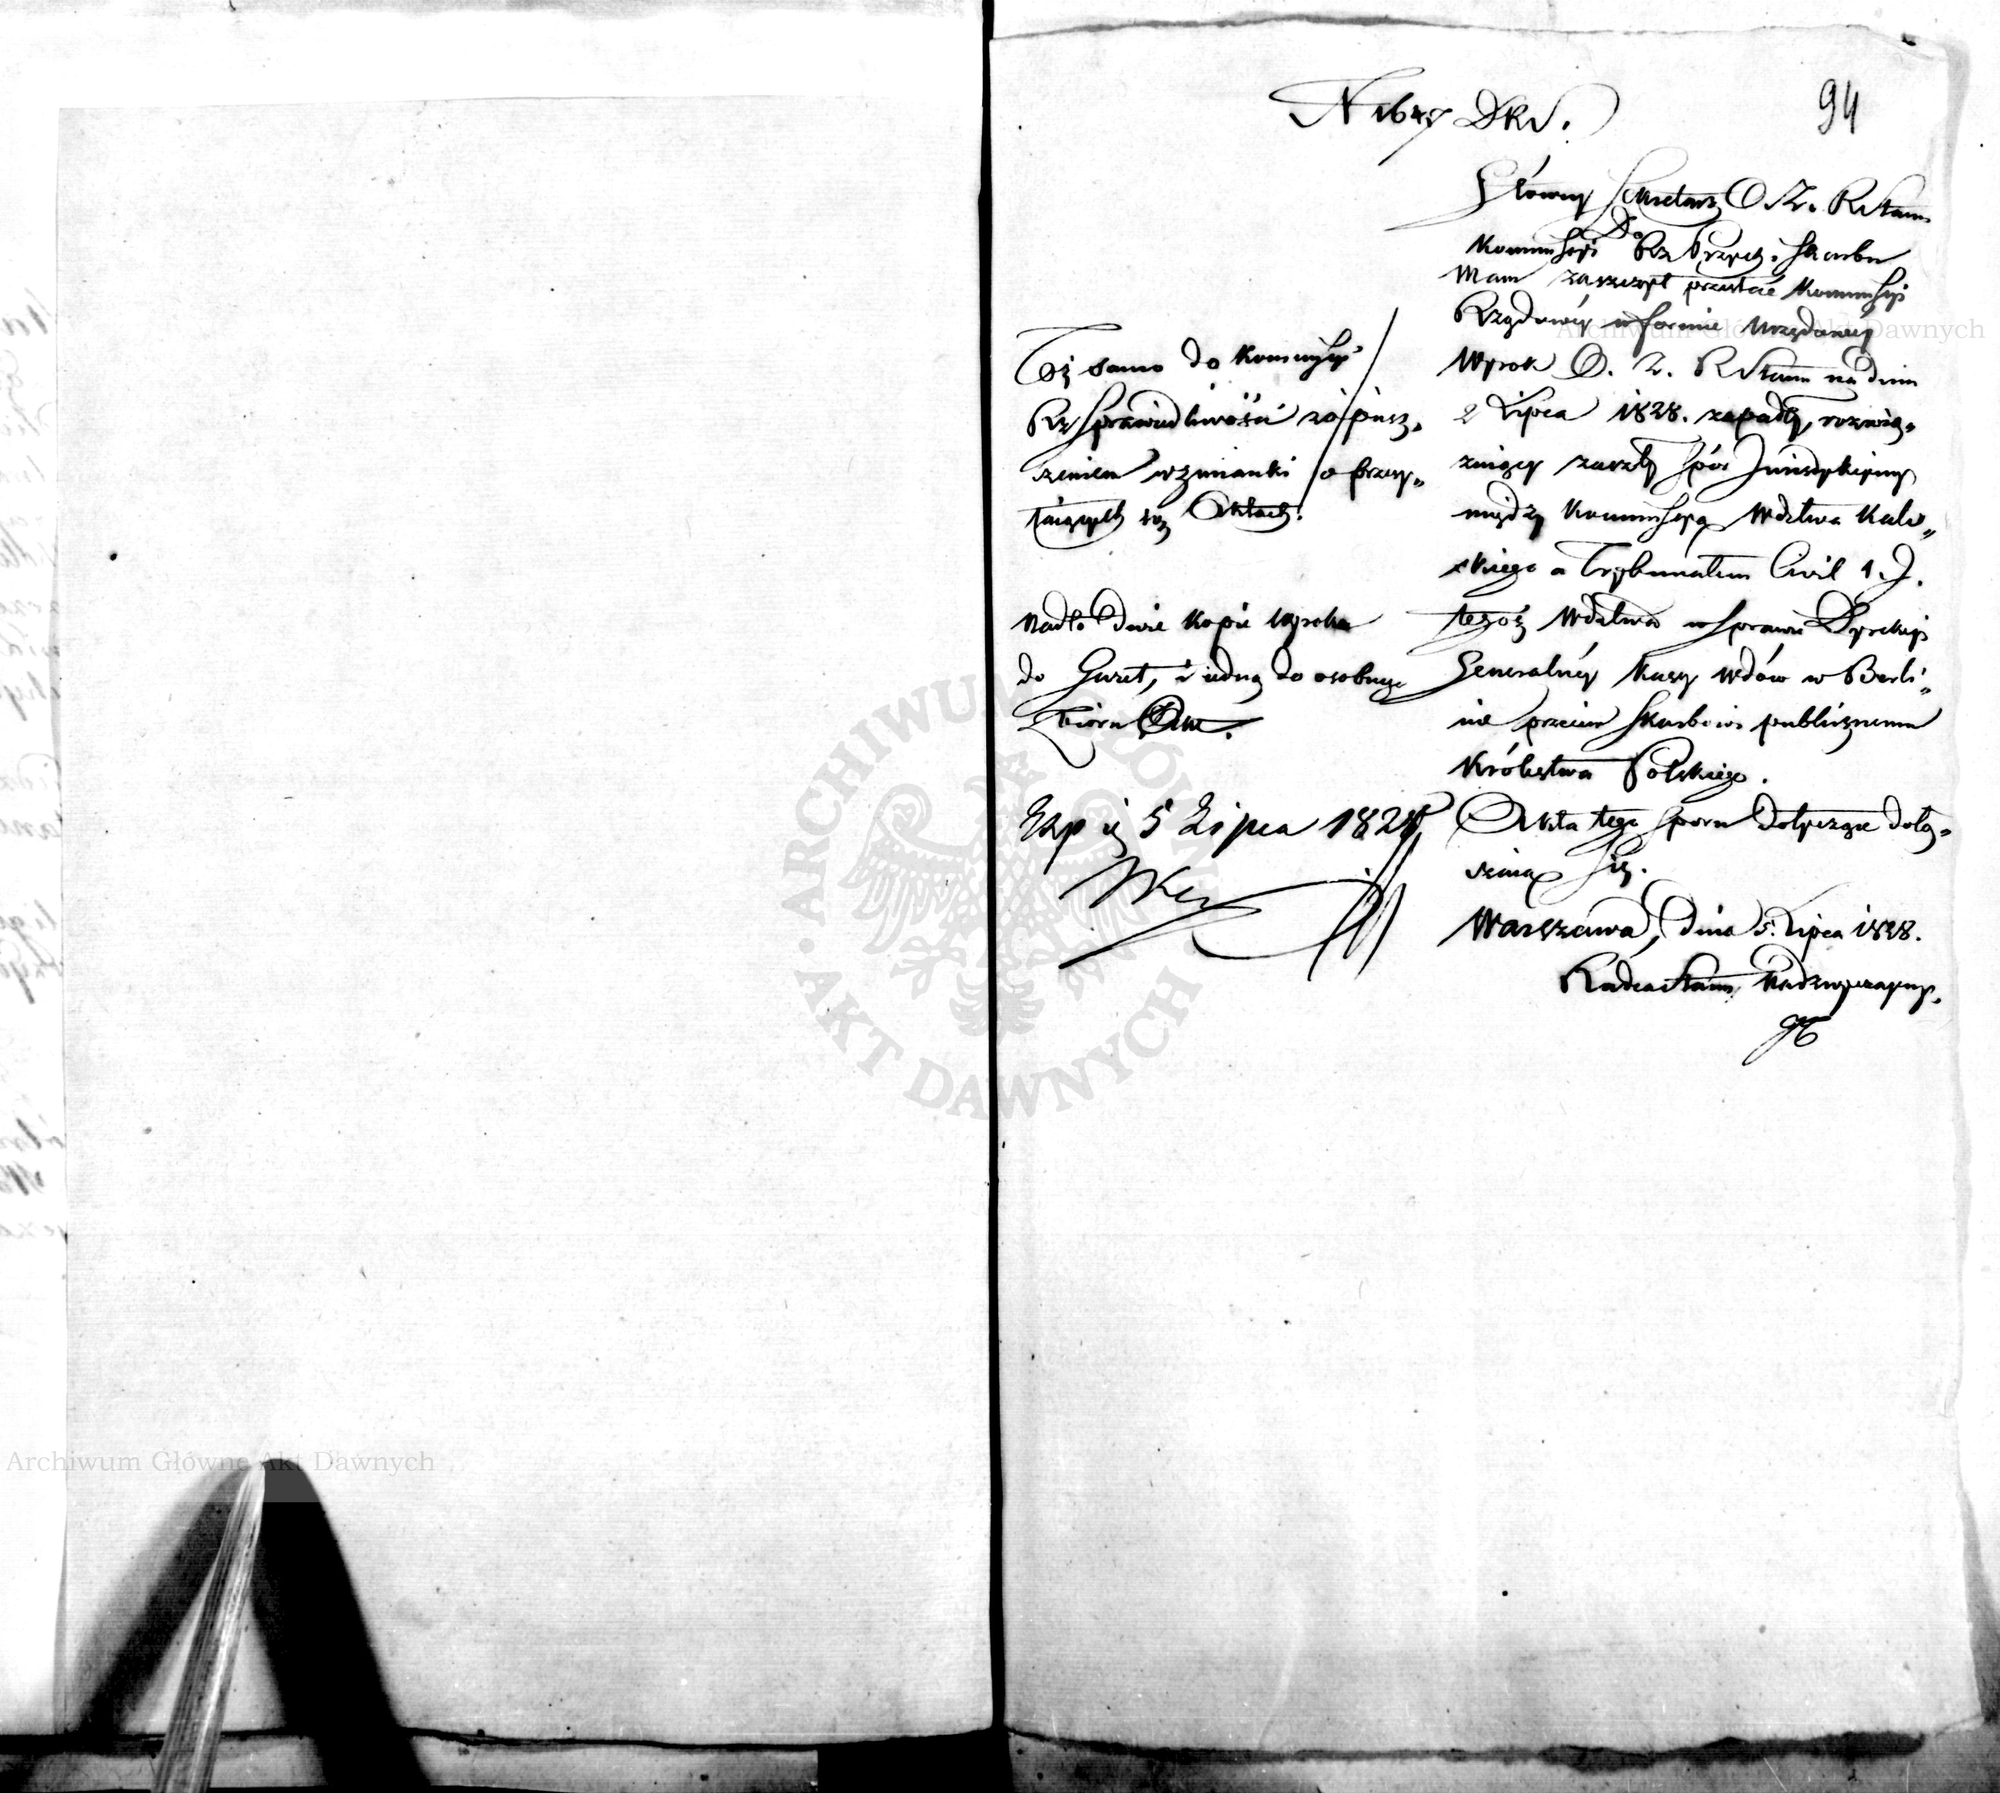 94
N 1647 DRS.
Główny Sekretarz O. Z. R. Stanu
Do
Kommissyi Rz. Przych. i Skarbu
Mam zaszczyt przesłać Kommissyi
Rządowéy w formie urzędowéy
Wyrok O. Z. R. Stanu na dniu
2 Lipca 1828. zapadły, rozwią„
zuiący zaszły spór Jurisdykcyiny
między Kommissyą Wdztwa Kali„
skiego a Trybunałem Cywil 1. J.
tegoż Wdztwa w sprawie Dyrekcyi
Generalnéy Kassy wdów w Berli„
nie przeciw Skarbowi publicznemu
Królestwa Polskiego.
Akta tego sporu dotyczące dołą„
czaią się.
Warszawa, dnia 5. Lipca 1828.
Radca Stanu Nadzwyczayny.
Toż samo do Kommissyi
Rz Sprawiedliwości z opusz„
czeniem wzmianki o przey„
łączaiących się Aktach.
Nadto dwie kopie wyroku
do Gazet, i iedną do osobnego
Zbioru
Exp. 5 Lipca 1828
ARCHIWUM GŁÓWNE AKT DAWNYCH
Archiwum Główne Akt Dawnych
Archiwum Główne Akt Dawnych